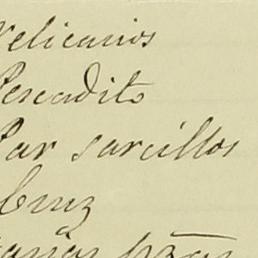 Relicarios
Pescadito
Par sarcillos
Cruz